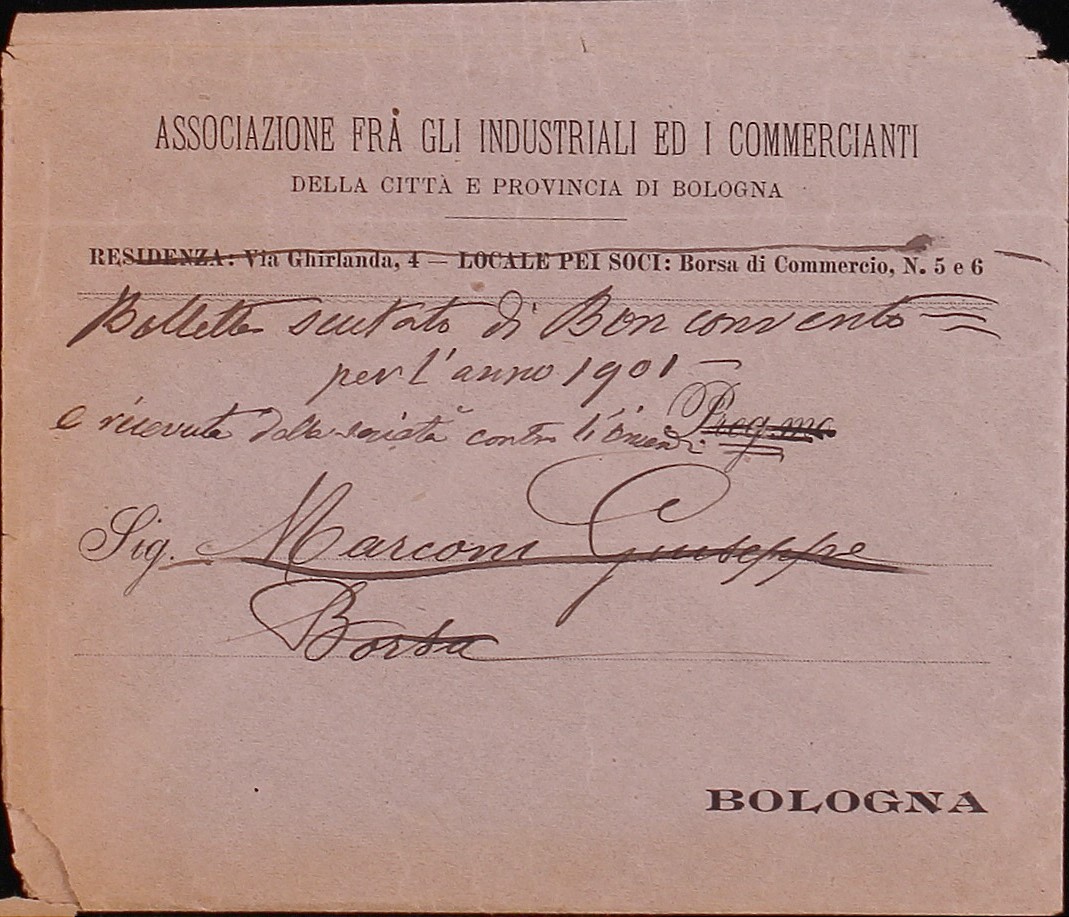 ASSOCIAZIONE FRÀ GLI INDUSTRIALI ED I COMMERCIANTI
DELLA CITTÀ E PROVINCIA DI BOLOGNA
RESIDENZA: Via Ghirlanda, 4 — LOCALE PEI SOCI: Borsa di Commercio, N. 5 e 6
di Bonconvento
per l'anno 1901 —
e ricevuta della società contro l'incendi Preg.mo
Sig. Marconi Giuseppe
Borsa
BOLOGNA